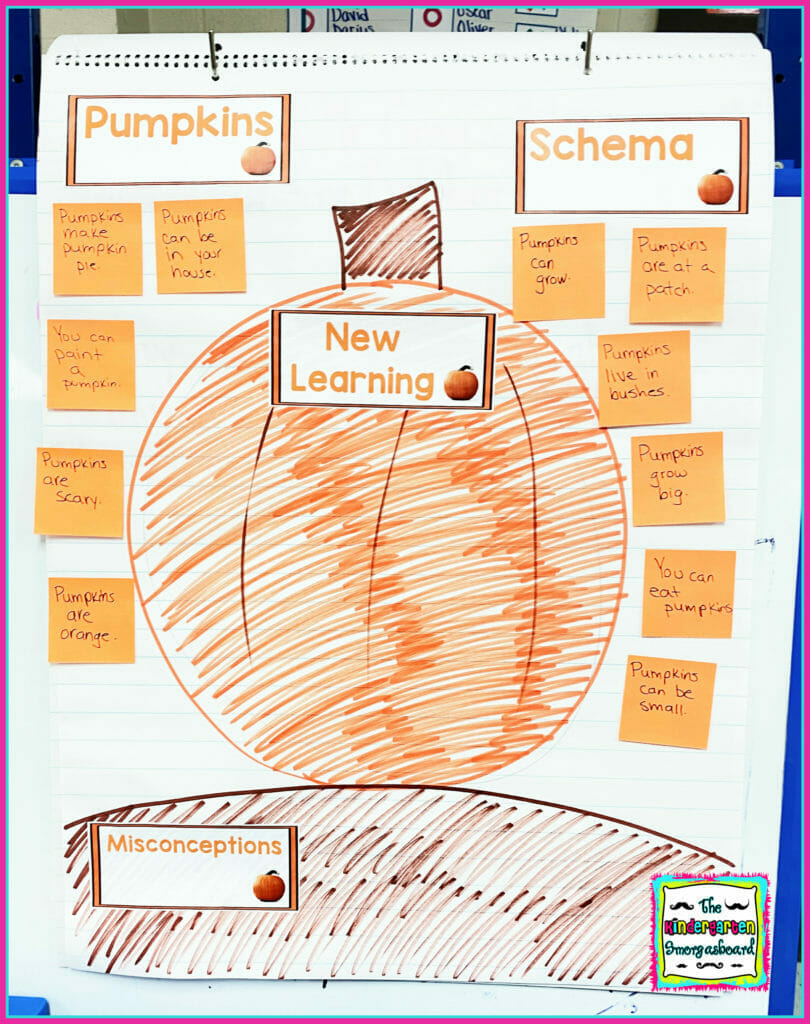 David
Darius
Oscar
Oliver
Pumpkins
Schema
Pumpkins
make
pumpkin
pie.
Pumpkins
can be
in your
house.
Pumpkins
can
grow.
Pumpkins
are at a
patch.
You can
paint
a
pumpkin.
New
Learning
Pumpkins
live in
bushes.
Pumpkins
are
scary.
Pumpkins
grow
big.
Pumpkins
are
orange.
You can
eat
pumpkins
Pumpkins
can be
small.
Misconceptions
The
Kindergarten
Smorgasboard